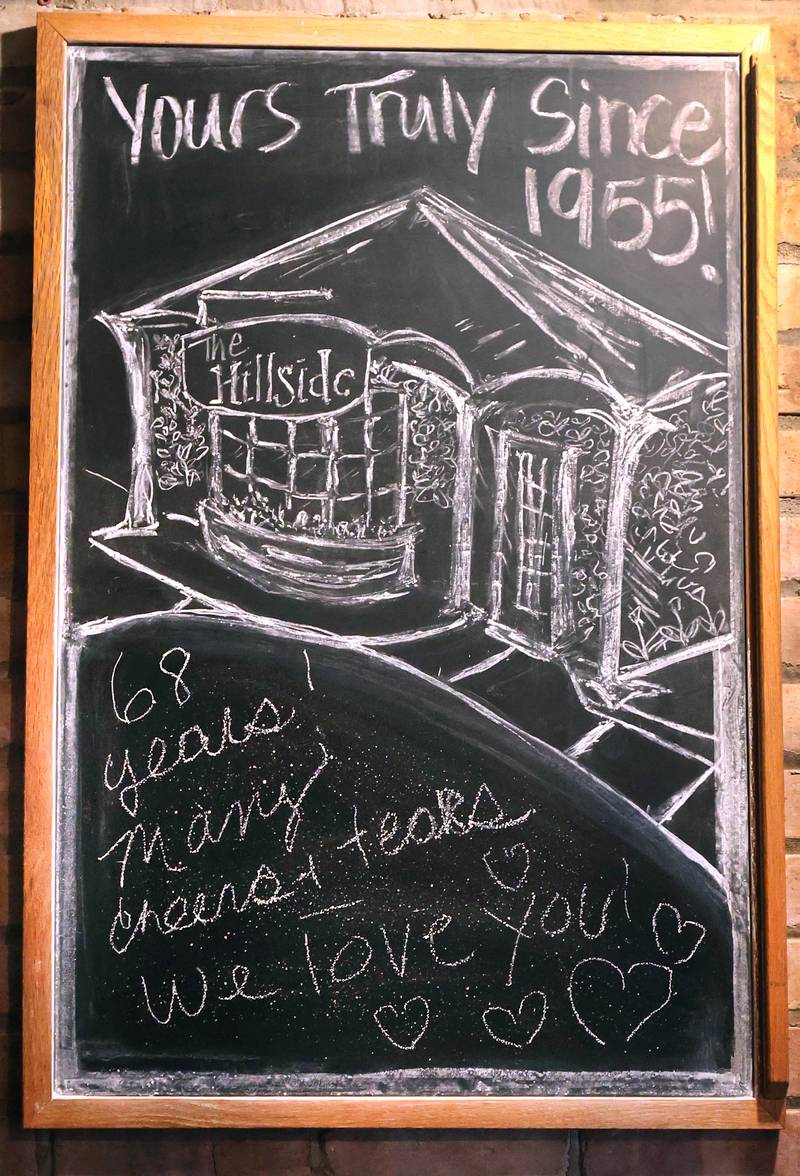 Yours Truly Since
1955!
The
Hillside
68
years!
Many
cheers + tears
We love you!